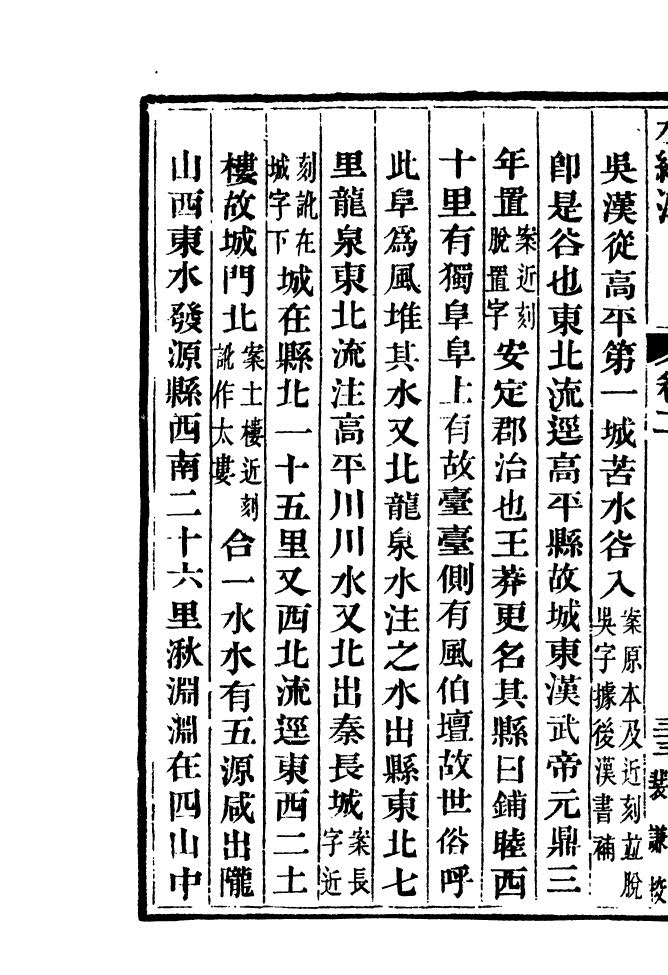 水經注 卷二 三三 裴謙校
吳漢從高平第一城苦水谷入案原本及近刻並脫吳字據後漢書補
卽是谷也東北流逕高平縣故城東漢武帝元鼎三
年置案近刻脫置字安定郡治也王莽更名其縣曰鋪睦西
十里有獨阜阜上有故臺臺側有風伯壇故世俗呼
此阜爲風堆其水又北龍泉水注之水出縣東北七
里龍泉東北流注高平川川水又北出秦長城案長字近
刻訛在城字下城在縣北一十五里又西北流逕東西二土
樓故城門北案土樓近刻訛作太婁合一水水有五源咸出隴
山西東水發源縣西南二十六里湫淵淵在四山中